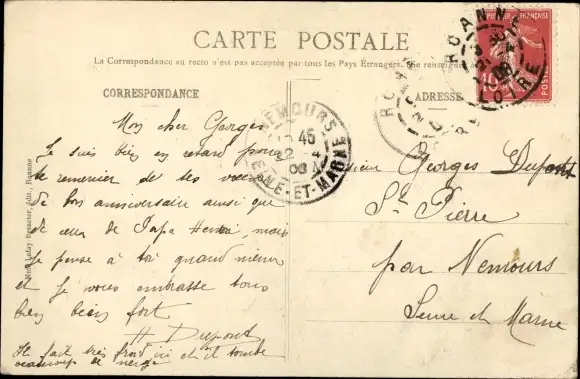 CARTE POSTALE
La Correspondance au recto n'est pas acceptée par tous les Pays Étrangers. (Se renseigner
CORRESPONDANCE
ADRESSE
Mon cher Georges
Je suis bien en retard pour
te remercier de tes vœux
de bon anniversaire ainsi que
de ceux de Papa Henri, mais
je pense à toi quand même
et je vous embrasse tous
bien bien fort
H Dupont
Il fait très froid ici et il tombe
beaucoup de neige
Monsieur Georges Dupont
St Pierre
par Nemours
Seine et Marne
NEMOURS
45
22 - 4
08
SEINE-ET-MARNE
ROANNE
LOIRE
RÉPUBLIQUE FRANÇAISE
POSTES
10
édit., Roanne